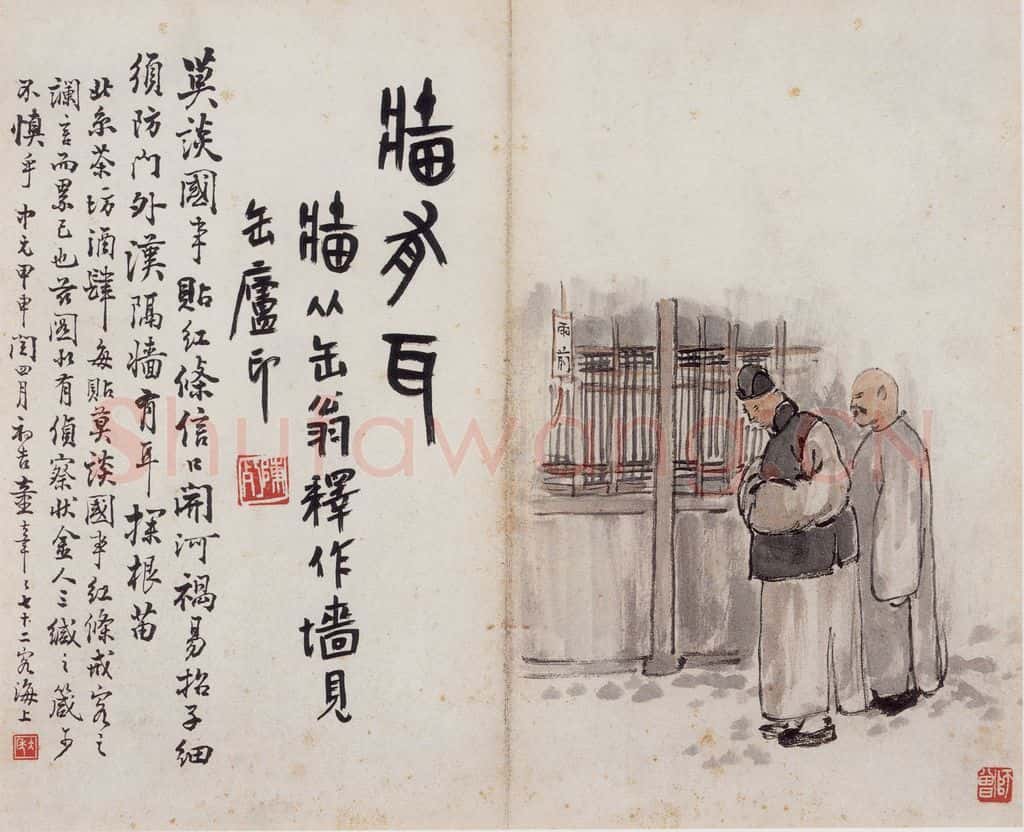 牆有耳
牆从缶翁釋作墻見
缶廬印
陳朽
莫談國事貼紅條信口開河禍易招子細
須防門外漢隔墻有耳探根苗
北京茶坊酒肆每貼莫談國事紅條戒客之
讕言而累己也 圖 有偵察狀金人三緘之箴可
不慎乎 中元甲申閏四月初吉 七十二客海上
雨前
師曾
Shufawang.CN